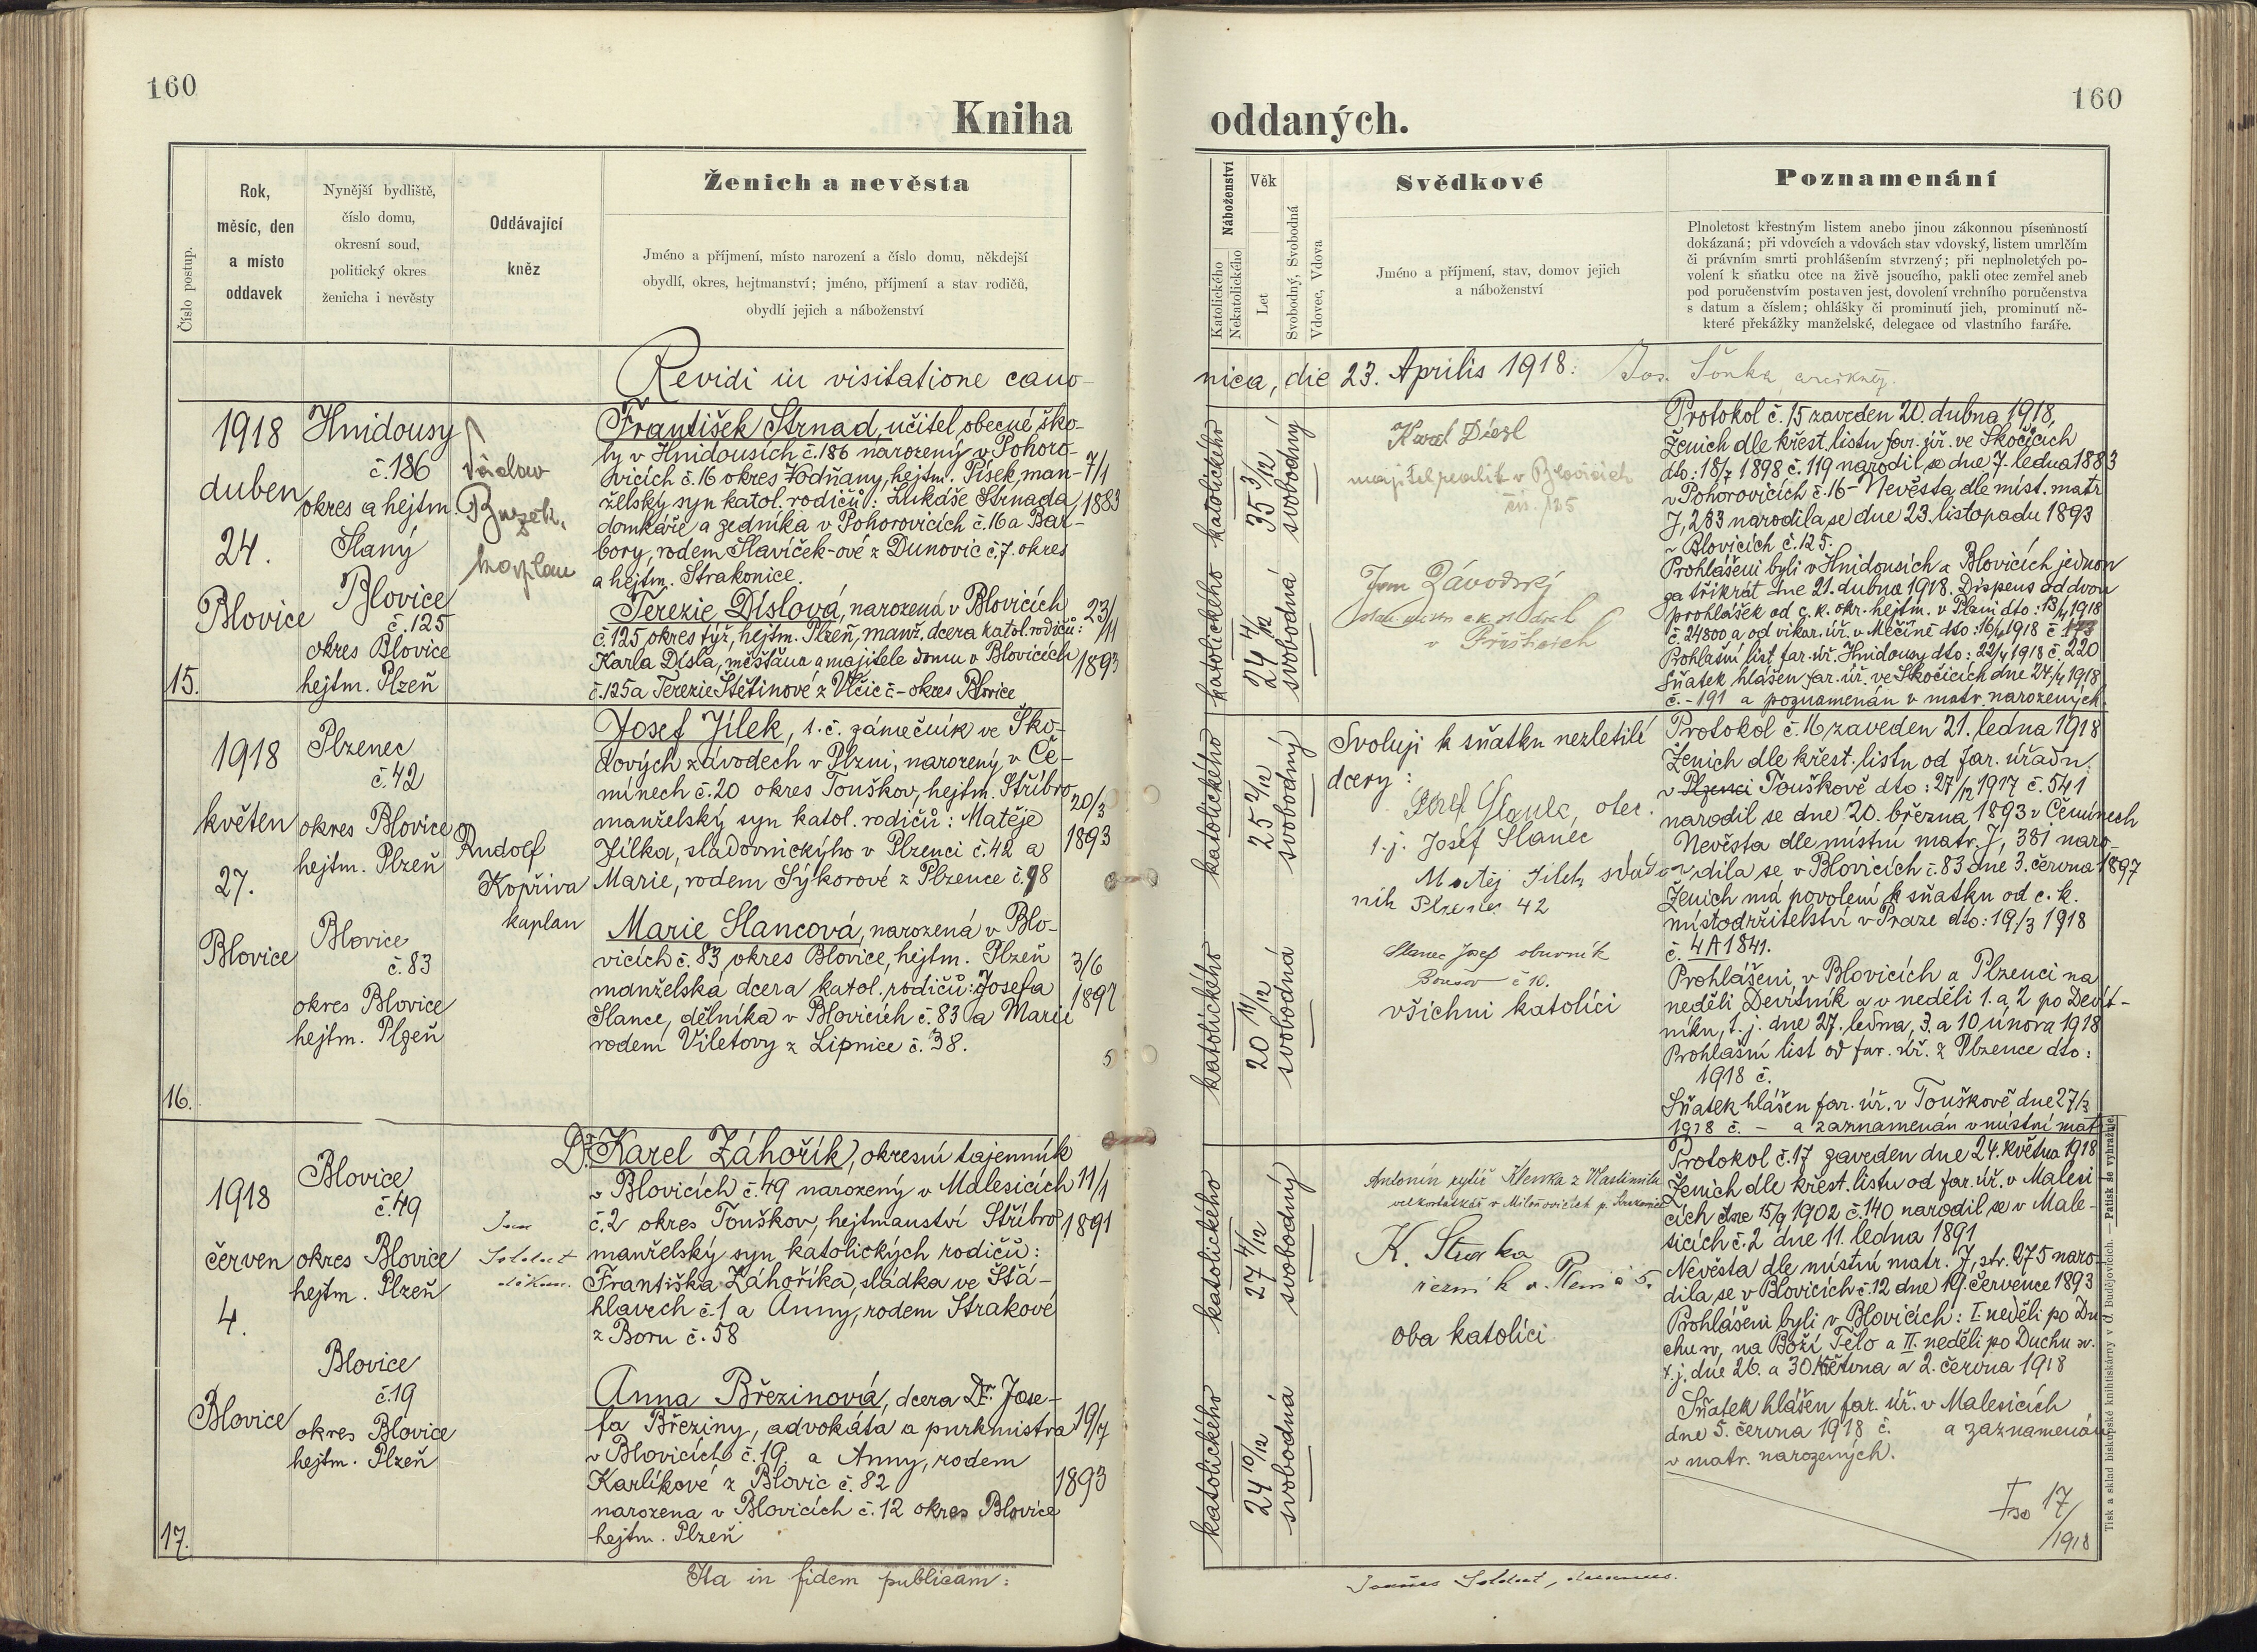 160
160
Kniha oddaných.
Číslo postup.
Rok,
měsíc, den
a místo
oddavek
Nynější bydliště,
číslo domu,
okresní soud,
politický okres
ženicha i nevěsty
Oddávající
kněz
Ženich a nevěsta
Jméno a příjmení, místo narození a číslo domu, někdejší
obydlí, okres, hejtmanství; jméno, příjmení a stav rodičů,
obydlí jejich a náboženství
Náboženství
Katolického
Nekatolického
Věk
Let
Svobodný, Svobodná
Vdovec, Vdova
Svědkové
Jméno a příjmení, stav, domov jejich
a náboženství
Poznamenání
Plnoletost křestným listem anebo jinou zákonnou písemností
dokázaná; při vdovcích a vdovách stav vdovský, listem umrlčím
či právním smrti prohlášením stvrzený; při neplnoletých po-
volení k sňatku otce na živě jsoucího, pakli otec zemřel aneb
pod poručenstvím postaven jest, dovolení vrchního poručenstva
s datum a číslem; ohlášky či prominutí jich, prominutí ně-
které překážky manželské, delegace od vlastního faráře.
Revidi in visitatione cano-
nica, die 23. Aprilis 1918: Jos. Šonka
15.
1918
duben
24.
Blovice
Hnidousy
č. 186
okres a hejtm.
Slaný
Blovice
č. 125
okres Blovice
hejtm. Plzeň
Václav
kaplan
František Strnad, učitel obecné ško-
ly v Hnidousích č. 186 narozený v Pohoro-
vicích č. 16 okres Vodňany, hejtm. Písek, man-
želský syn katol. rodičů: Lukáše Strnada
domkáře a zedníka v Pohorovicích č. 16 a Bar-
bory, rodem Slavíček-ové z Dunovic č. 7. okres
a hejtm. Strakonice.
7/1
1883
Terezie Díslová, narozená v Blovicích
č. 125 okres týž, hejtm. Plzeň, manž. dcera katol. rodičů:
Karla Dísla, měšťana a majitele domu v Blovicích
č. 125 a Terezie Štětinové z Vlčic č - okres Blovice
23/11
1893
katolického
35 3/12
svobodný
katolického
24 4/12
svobodná
Karel Diesl
majitel realit v Blovicích
čís. 125
Závodský
Protokol č. 15 zaveden 20. dubna 1918,
Ženich dle křest. listu far. úř. ve Skočicích
dto: 18/7 1898 č. 119 narodil se dne 7. ledna 1883
v Pohorovicích č. 16 - Nevěsta dle míst. matr
J, 283 narodila se dne 23. listopadu 1893
v Blovicích č. 125.
Prohlášeni byli v Hnidousích a Blovicích jednou
za třikrát dne 21. dubna 1918. Dispens od dvou
prohlášek od c. k. okr. hejtm. v Plzni dto: 13/4 1918
č. 24800 a od vikar. úř. v Měčíně dto: 16/4 1918 č 173
Prohlašní list far. úř. Hnidousy dto: 22/4 1918 č. 220
Sňatek hlášen far. úř. ve Skočicích dne 24/4 1918
č. - 191 a poznamenán v matr. narozených.
16.
1918
květen
27.
Blovice
Plzenec
č. 42
okres Blovice
hejtm. Plzeň
Blovice
č. 83
okres Blovice
hejtm. Plzeň
Rudolf
Kopřiva
kaplan
Josef Jílek, t. č. zámečník ve Ško-
dových závodech v Plzni, narozený v Če-
mínech č. 20 okres Touškov, hejtm. Stříbro
manželský syn katol. rodičů: Matěje
Jílka, sladovnického v Plzenci č. 42 a
Marie, rodem Sýkorové z Plzence č. 98
20/3
1893
Marie Slancová, narozená v Blo-
vicích č. 83, okres Blovice, hejtm. Plzeň
manželská dcera katol. rodičů: Josefa
Slance, dělníka v Blovicích č. 83 a Marie
rodem Viletovy z Lipnice č. 38.
3/6
1897
5
katolického
25 2/12
svobodný
katolického
20 11/12
svobodná
Svoluji k sňatku nezletilé
dcery:
Josef Slanec, otec.
t. j. Josef Slanec
Matěj Jílek sládov
ník Plzenec 42
Slanec Josef obuvník
č 10.
všichni katolíci
Protokol č. 16 zaveden 21. ledna 1918
Ženich dle křest. listu od far. úřadu
v Plzenci Touškově dto: 27/12 1917 č. 541
narodil se dne 20. března 1893 v Čemínech
Nevěsta dle místní matr. J, 381 naro-
dila se v Blovicích č. 83 dne 3. června 1897
Ženich má povolení k sňatku od c. k.
místodržitelství v Praze dto: 19/3 1918
č. 4A 1841.
Prohlášeni v Blovicích a Plzenci na
neděli Devítník a v neděli 1. a 2 po Devít-
níku, t. j. dne 27. ledna, 3. a 10 února 1918
Prohlašní list od far. úř. z Plzence dto:
1918 č.
Sňatek hlášen far. úř. v Touškově dne 27/3
1918 č. - a zaznamenán v místní matr
17.
1918
červen
4.
Blovice
Blovice
č. 49
okres Blovice
hejtm. Plzeň
Blovice
č. 19
okres Blovice
hejtm. Plzeň
Jan
Soldat
děkan.
Dr. Karel Záhořík, okresní tajemník
v Blovicích č. 49 narozený v Malesicích
č. 2 okres Touškov, hejtmanství Stříbro
manželský syn katolických rodičů:
Františka Záhoříka, sládka ve Stá-
hlavech č. 1 a Anny, rodem Strakové
z Boru č. 58
11/1
1891
Anna Březinová, dcera Dr. Jose-
fa Březiny, advokáta a purkmistra
v Blovicích č. 19. a Anny, rodem
Karlíkové z Blovic č. 82
narozena v Blovicích č. 12 okres Blovice
hejtm. Plzeň
19/7
1893
katolického
27 4/12
svobodný
katolického
24 10/12
svobodná
Antonín rytíř Klenka z Vlastimilu
velkostatkář v
K. Sturka
řezník v Plzni č 5.
oba katolíci
Protokol č. 17 zaveden dne 24. května 1918
Ženich dle křest. listu od far. úř. v Malesi-
cích dne 15/9 1902 č. 140 narodil se v Male-
sicích č. 2 dne 11. ledna 1891
Nevěsta dle místní matr. J, str. 275 naro-
dila se v Blovicích č. 12 dne 19. července 1893
Prohlášeni byli v Blovicích: I neděli po Du-
chu sv, na Boží Tělo a II. neděli po Duchu sv.
t. j. dne 26. a 30 května a 2. června 1918
Sňatek hlášen far. úř. v Malesicích
dne 5. června 1918 č. a zaznamenán
v matr. narozených.
17/
/1918
Ita in fidem publicam:
Joannes Soldat, decanus.
Tisk a sklad biskupské knihtiskárny v č. Budějovicích. — Patisk se vyhražuje.